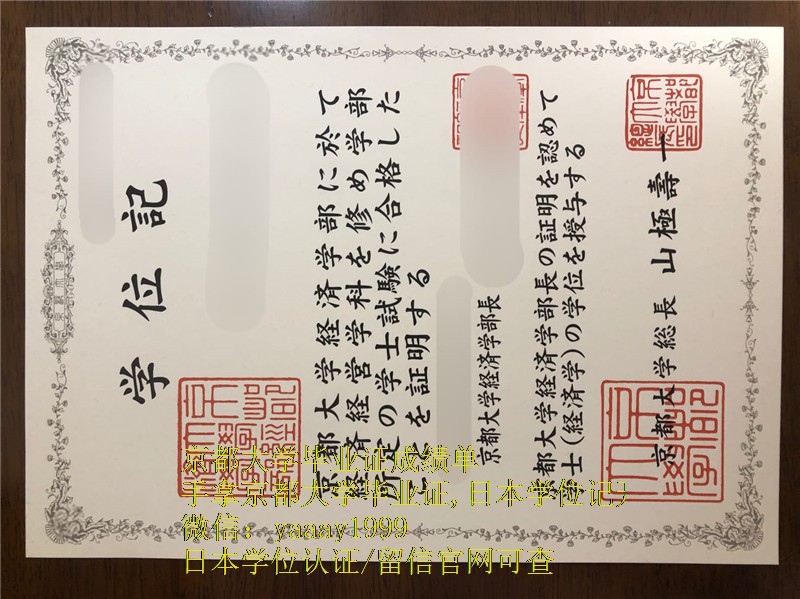 学位記
京都大学経済学部に於て
経済経営学科を修め学部
所定の学士試験に合格した
ことを証明する
京都大学経済学部長
京都大学経済学部長の証明を認めて
学士(経済学)の学位を授与する
京都大学総長 山極壽一
京都大学毕业证成绩单
手拿京都大学毕业证,日本学位记;
微信：yaaay1999
日本学位认证/留信官网可查